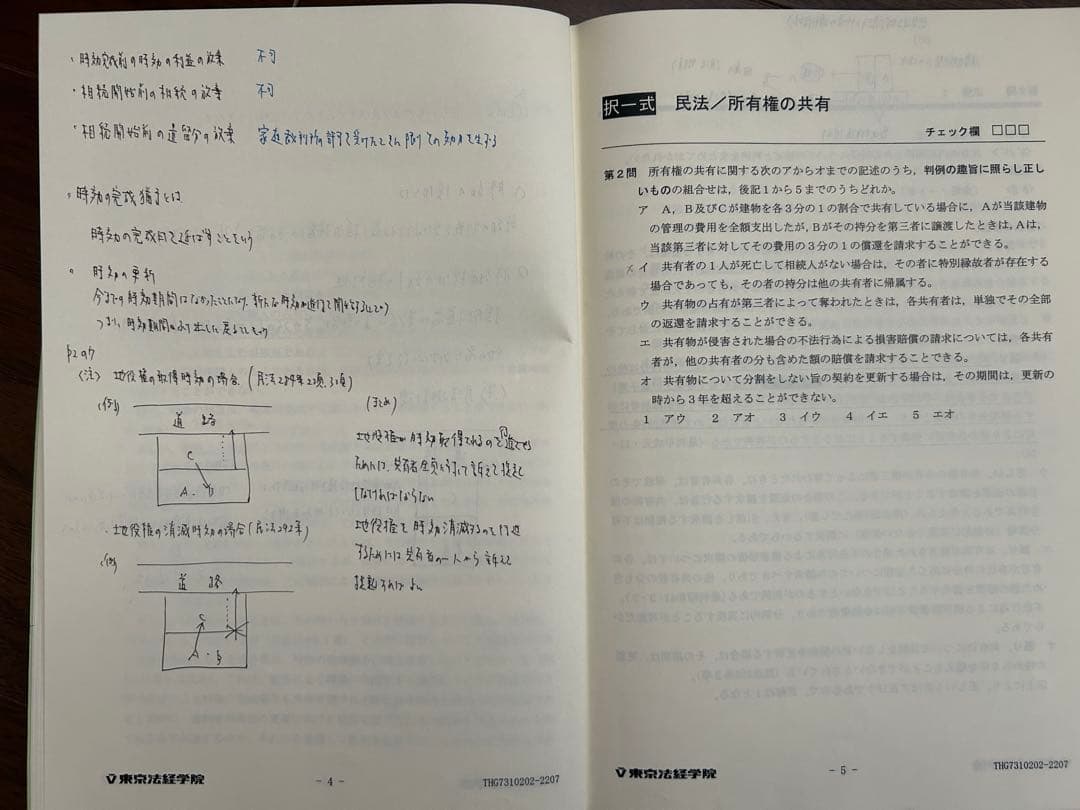 ・時効完成前の時効の利益の放棄 不可
・相続開始前の相続の放棄 不可
・相続開始前の遺留分の放棄 家庭裁判所の許可を受けたときに限りその効力を生ずる
。時効の完成猶予とは
時効の完成時を延ばすことをいう
。時効の更新
p2のウ
(注) 地役権の取得時効の場合 (民法284年2項、3項)
(例)
道路
C
A・B
(まとめ)
地役権が時効取得されるのを
ためには、共有者全員に対して訴えを提起
しなければならない
・地役権の消滅時効の場合(民法292年)
(例)
道路
C
A・B
地役権を時効消滅するのを阻
するためには共有者の一人から訴えを
提起すればよい
東京法経学院
- 4 -
THG7310202-2207
択一式 民法/所有権の共有
チェック欄 □□□
第2問 所有権の共有に関する次のアからオまでの記述のうち,判例の趣旨に照らし正し
いものの組合せは,後記1から5までのうちどれか。
ア A,B及びCが建物を各3分の1の割合で共有している場合に,Aが当該建物
の管理の費用を全額支出したが,Bがその持分を第三者に譲渡したときは,Aは,
当該第三者に対してその費用の3分の1の償還を請求することができる。
×イ 共有者の1人が死亡して相続人がない場合は,その者に特別縁故者が存在する
場合であっても,その者の持分は他の共有者に帰属する。
ウ 共有物の占有が第三者によって奪われたときは,各共有者は,単独でその全部
の返還を請求することができる。
エ 共有物が侵害された場合の不法行為による損害賠償の請求については,各共有
者が,他の共有者の分も含めた額の賠償を請求することできる。
オ 共有物について分割をしない旨の契約を更新する場合は,その期間は,更新の
時から3年を超えることができない。
1 アウ 2 アオ 3 イウ 4 イエ 5 エオ
東京法経学院
- 5 -
THG7310202-2207